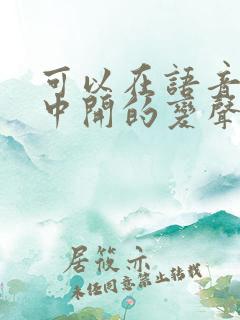 可以在語音
中開的變聲
居筱亦
未经同意禁止转载